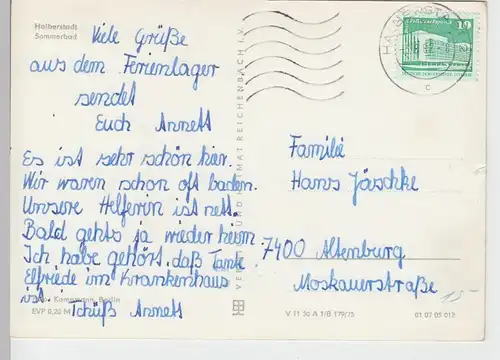 Halberstadt
Sommerbad
Viele Grüße
aus dem Ferienlager
sendet
Euch Annett
Es ist sehr schön hier.
Wir waren schon oft baden.
Unsere Helferin ist nett.
Bald gehts ja wieder heim.
Ich habe gehört, daß Tante
Elfriede im Krankenhaus
ist. Tschüß Annett
Berlin
EVP 0,20 M
REICHENBACH I. V.
V 11 50 A 1/B 179/75
01 07 05 012
10
HALBERSTADT
c
Familie
Hans Jäschke
7400 Altenburg
Moskauerstraße